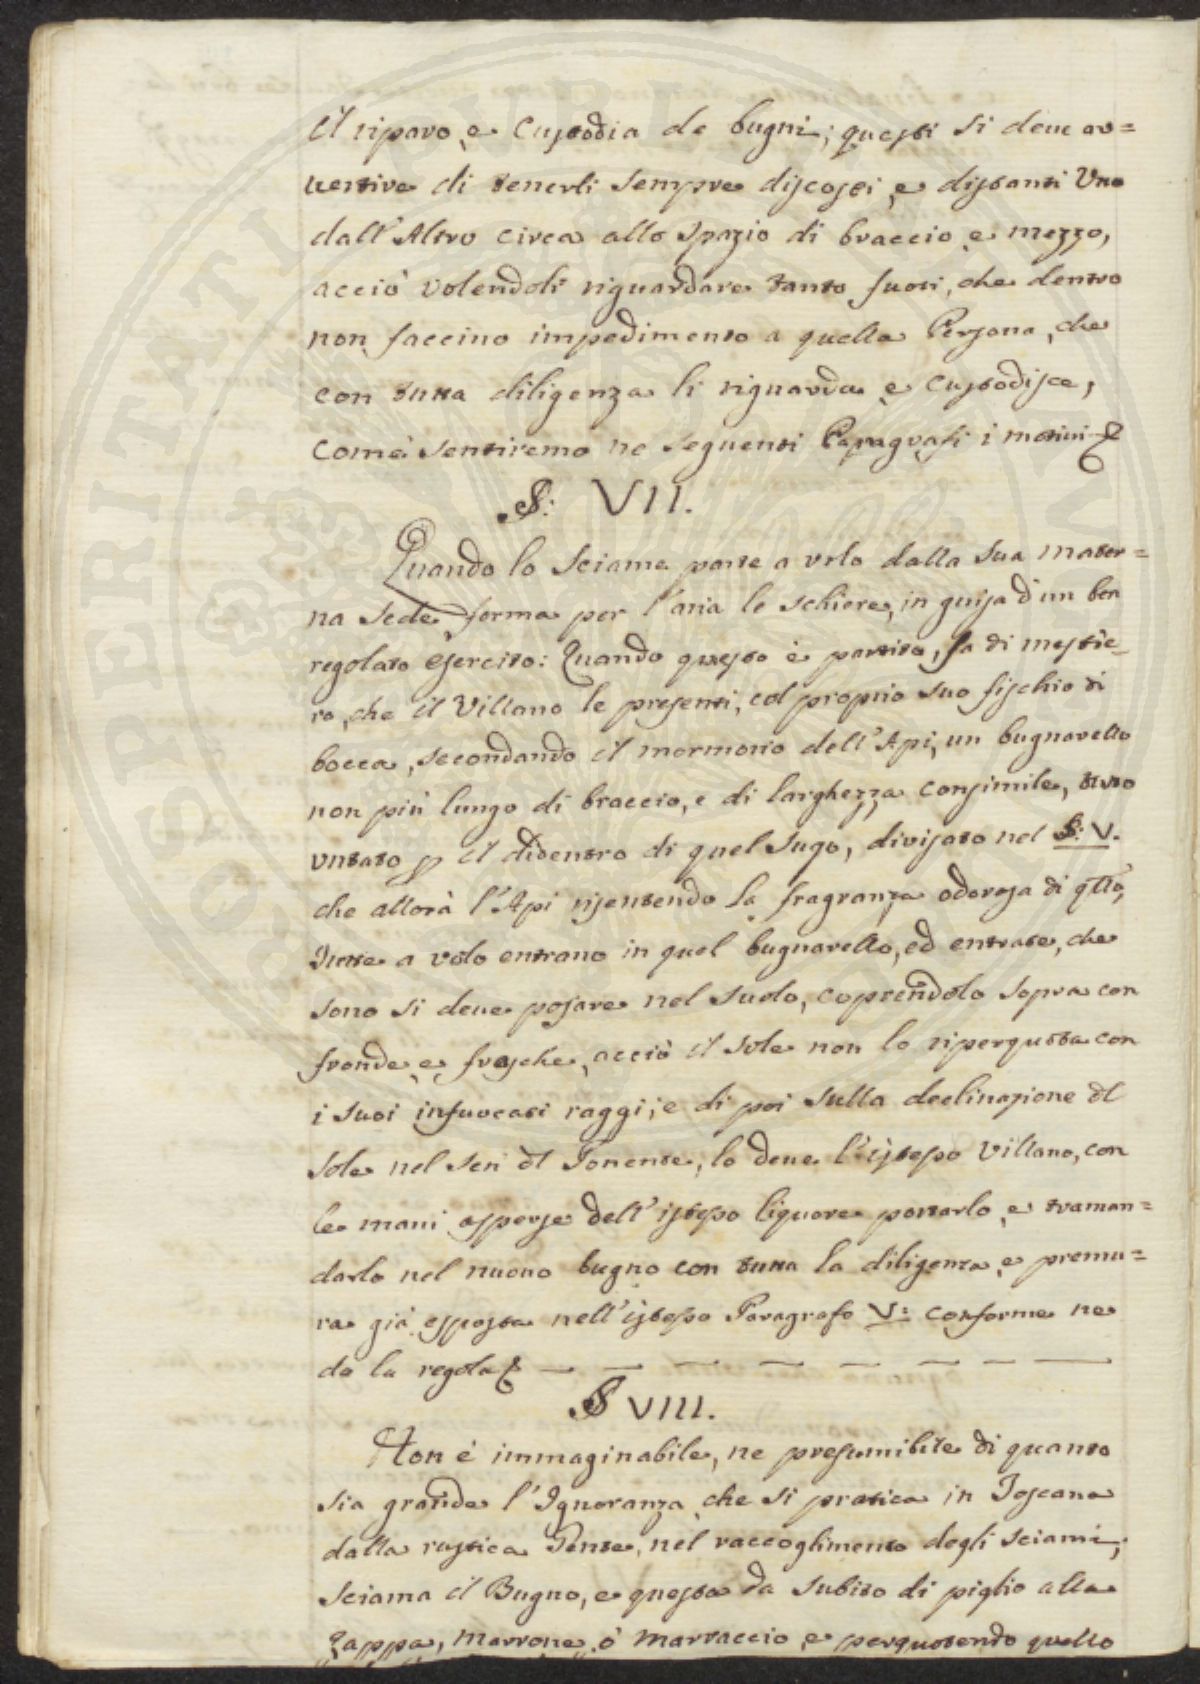 il riparo, e Custodia de bugni; questi si deve av=
vertire di tenerli sempre discosti, e distanti Uno
dall'Altro circa allo spazio di braccio, e mezzo,
acciò volendoli riguardare tanto fuori, che dentro
non faccino impedimento a quella Persona, che
con tutta diligenza li riguarda, e Custodisce,
come sentiremo ne seguenti Paragrafi i motivi
§: VII.
Quando lo sciame parte a volo dalla sua mater=
na sede, forma per l'aria le schiere, in guisa d'un ben
regolato esercito: Quando questo è partito, fa di mestie=
ro, che il Villano le presenti, col proprio suo fischio di
bocca, secondando il mormorio dell'Api, un bugnarello
non più lungo di braccio, e di larghezza consimile, tutto
untato p il didentro di quel sugo, divisato nel §: V.
che allora l'Api risentendo la fragranza odorosa di qtto,
Tutte a volo entrano in quel bugnarello, ed entrate, che
sono si deve posare nel suolo, coprendolo sopra con
fronde, e frasche, acciò il sole non lo riperquota con
i suoi infuocati raggi; e di poi sulla declinazione dl
sole nel sen dl Tonente, lo deve l'istesso Villano, con
le mani asperse dell'istesso liquore portarlo, e traman=
darlo nel nuovo bugno con tutta la diligenza, e premu=
ra già esposta nell'istesso Paragrafo V: conforme ne
da la regola
§ VIII.
Non è immaginabile, ne presumibile di quanto
sia grande l'Ignoranza, che si pratica in Toscana
dalla rustica Gente, nel raccoglimento degli sciami;
sciama il Bugno, e questa da subito di piglio alla
zappa, Marrone, ò Marraccio, e perquotendo quello